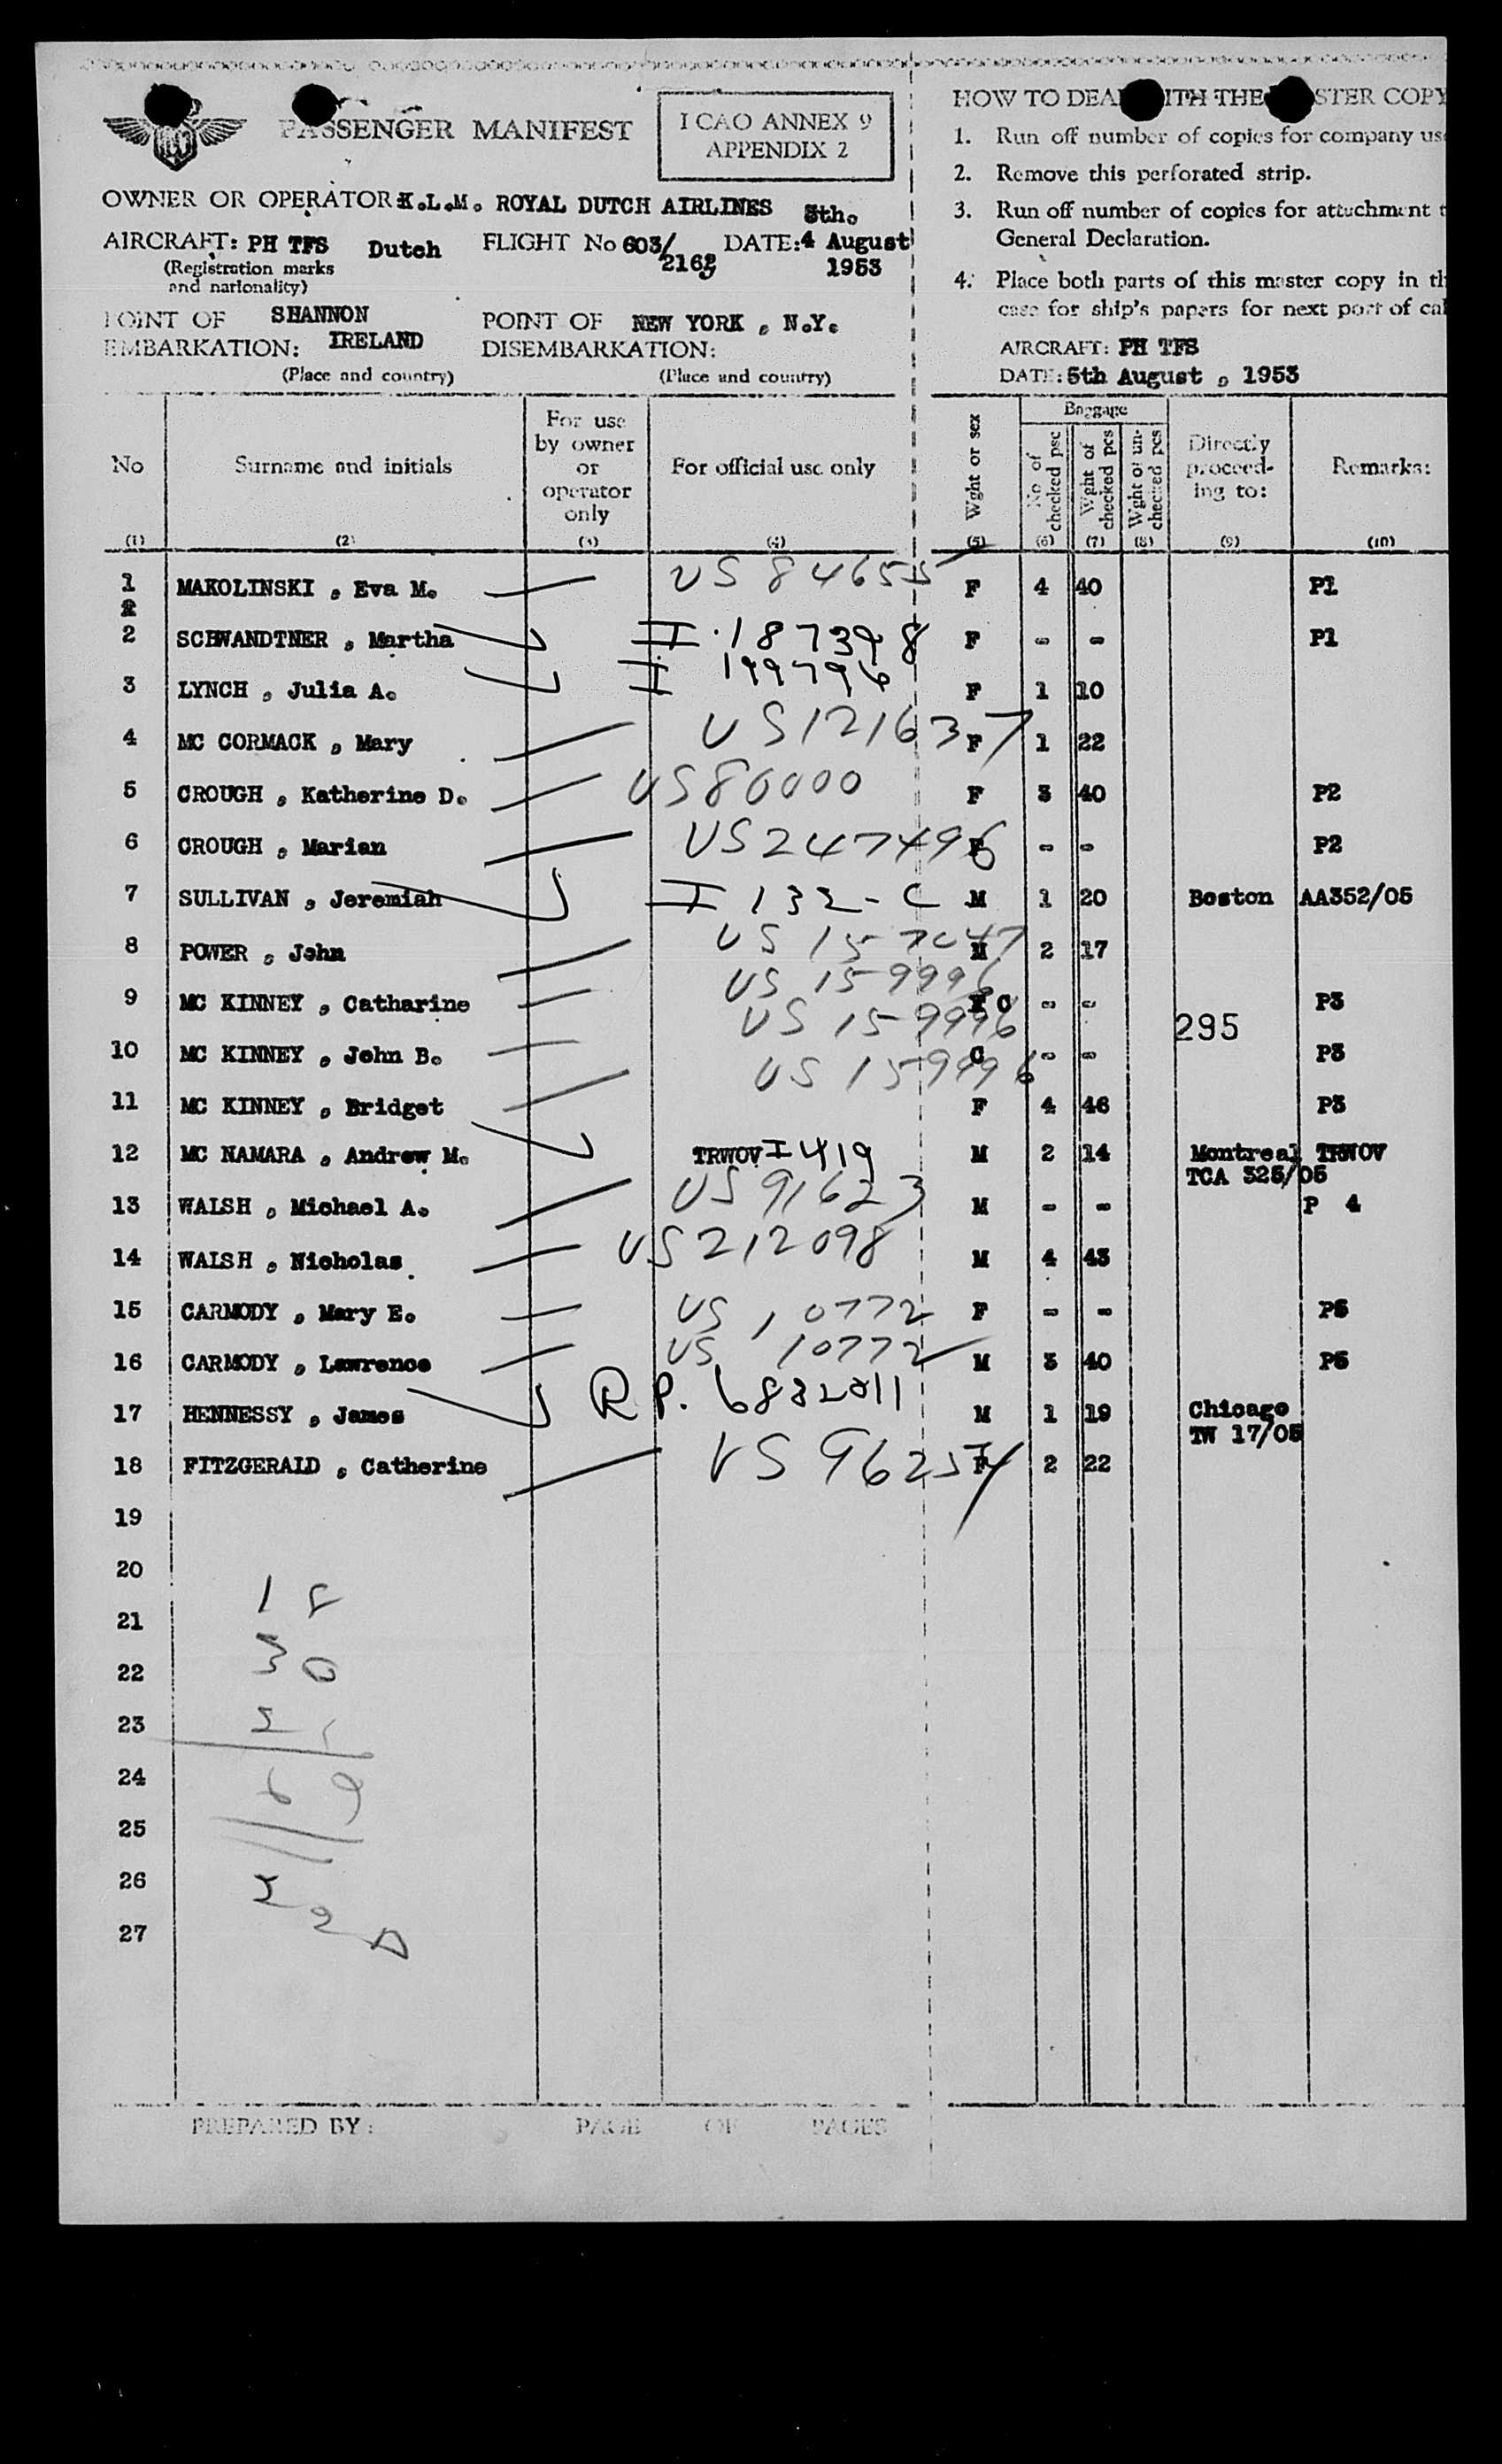 PASSENGER MANIFEST
I CAO ANNEX 9
APPENDIX 2
OWNER OR OPERATOR: K.L.M. ROYAL DUTCH AIRLINES
5th.
AIRCRAFT: PH TFS Dutch FLIGHT No 603/ DATE: 4 August
(Registration marks 1953
and nationality)
POINT OF SHANNON POINT OF NEW YORK , N.Y.
EMBARKATION: IRELAND DISEMBARKATION:
(Place and country) (Place and country)
HOW TO DEAL WITH THE MASTER COPY
1. Run off number of copies for company
2. Remove this perforated strip.
3. Run off number of copies for attachment
General Declaration.
4. Place both parts of this master copy in
case for ship's papers for next port of
AIRCRAFT: PH TFS
DATE: 5th August , 1953
No Surname and initials For use by owner or operator only For official use only Wght or sex Baggage No of checked psc Wght of checked pcs Wght of un-checked pcs Directly proceed-ing to: Remarks:
(1) (2) (3) (4) (5) (6) (7) (8) (9) (10)
1 MAKOLINSKI , Eva M. US 84655 F 4 40 P1
2 SCHWANDTNER , Martha I. 187398 F - - P1
3 LYNCH , Julia A. I 199796 F 1 10
4 MC CORMACK , Mary US 121637 F 1 22
5 CROUGH , Katherine D. US 80000 F 3 40 P2
6 CROUGH , Marian US 247496 F - - P2
7 SULLIVAN , Jeremiah I 132-C M 1 20 Boston AA352/05
8 POWER , John US 157047 M 2 17
9 MC KINNEY , Catharine US 159996 F C - - P3
295
10 MC KINNEY , John B. US 159996 C - - P3
11 MC KINNEY , Bridget US 159996 F 4 46 P3
12 MC NAMARA , Andrew M. TRWOV I 419 M 2 14 Montreal TRWOV
TCA 325/05
13 WALSH , Michael A. US 91623 M - - P 4
14 WALSH , Nicholas US 212098 M 4 43
15 CARMODY , Mary E. US 10772 F - - P5
16 CARMODY , Lawrence US 10772 M 3 40 P5
17 HENNESSY , James R P. M 1 19 Chicago
TW 17/05
18 FITZGERALD , Catherine US 96254 F 2 22
19
20
21
22
23
24
25
26
27
PREPARED BY: PAGE OF PAGES